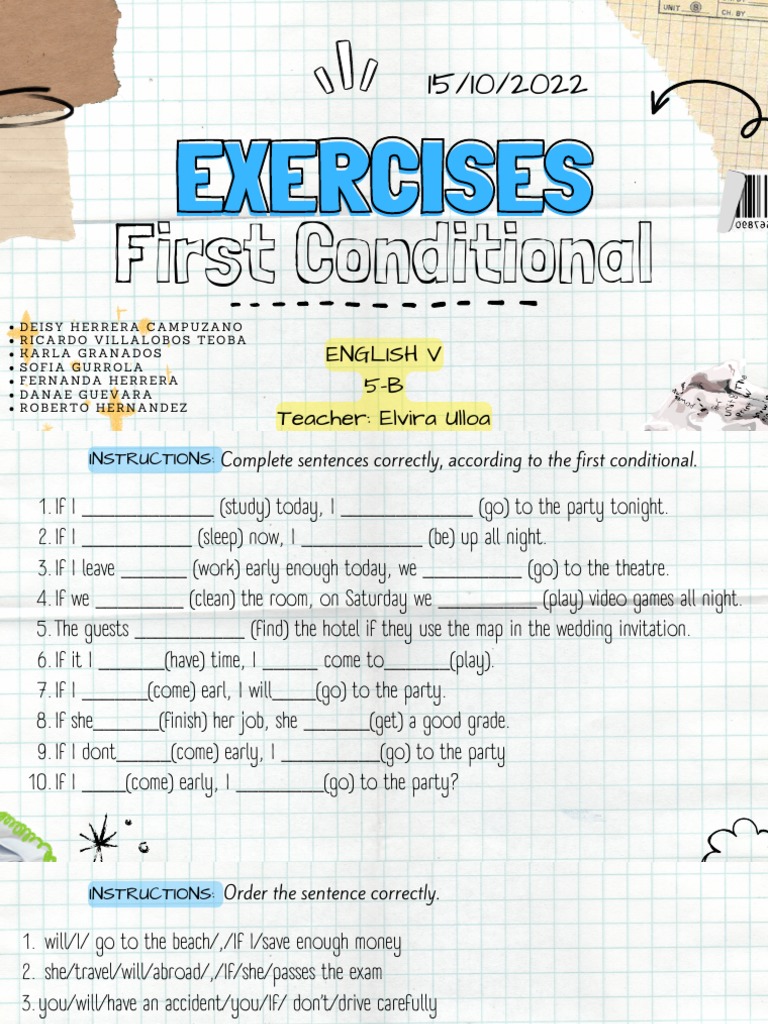 UNIT. 8
CH. BY
15/10/2022
EXERCISES
First Conditional
067890
• DEISY HERRERA CAMPUZANO
• RICARDO VILLALOBOS TEOBA
• KARLA GRANADOS
• SOFIA GURROLA
• FERNANDA HERRERA
• DANAE GUEVARA
• ROBERTO HERNANDEZ
ENGLISH V
5-B
Teacher: Elvira Ulloa
INSTRUCTIONS: Complete sentences correctly, according to the first conditional.
1. If I ______________ (study) today, I ______________ (go) to the party tonight.
2. If I ____________ (sleep) now, I _____________ (be) up all night.
3. If I leave _______ (work) early enough today, we ___________ (go) to the theatre.
4. If we _________ (clean) the room, on Saturday we ___________ (play) video games all night.
5. The guests ____________ (find) the hotel if they use the map in the wedding invitation.
6. If it I _______(have) time, I ______ come to_______(play).
7. If I _______(come) earl, I will_____(go) to the party.
8. If she_______(finish) her job, she _______(get) a good grade.
9. If I dont______(come) early, I ___________(go) to the party
10. If I _____(come) early, I __________(go) to the party?
INSTRUCTIONS: Order the sentence correctly.
1. will/I/ go to the beach/,/If I/save enough money
2. she/travel/will/abroad/,/If/she/passes the exam
3. you/will/have an accident/you/If/ don't/drive carefully